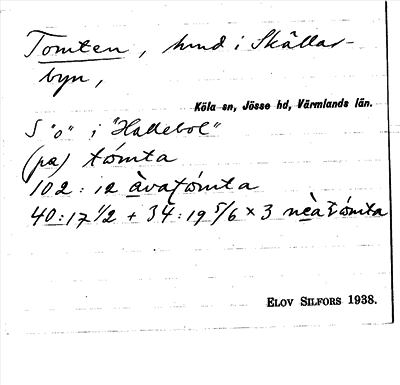 Tomten, hmd i Skållar-
byn,
Köla sn, Jösse hd, Värmlands län.
S "o" i "Hallebol"
(pa) tómta
102: 12 àvatómta
40:17 1/2 + 34:19 5/6 x 3 nèatómta
ELOV SILFORS 1938.